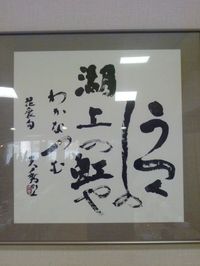 うつく
しの
湖上の虹や
わかなつむ